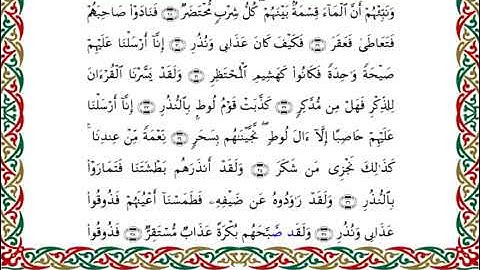 وَنَبِّئْهُمْ أَنَّ ٱلْمَآءَ قِسْمَةٌۢ بَيْنَهُمْ ۖ كُلُّ شِرْبٍ مُّحْتَضَرٌ ﴿٢٨﴾ فَنَادَوْا۟ صَاحِبَهُمْ
فَتَعَاطَىٰ فَعَقَرَ ﴿٢٩﴾ فَكَيْفَ كَانَ عَذَابِى وَنُذُرِ ﴿٣٠﴾ إِنَّآ أَرْسَلْنَا عَلَيْهِمْ
صَيْحَةً وَٰحِدَةً فَكَانُوا۟ كَهَشِيمِ ٱلْمُحْتَظِرِ ﴿٣١﴾ وَلَقَدْ يَسَّرْنَا ٱلْقُرْءَانَ
لِلذِّكْرِ فَهَلْ مِن مُّدَّكِرٍ ﴿٣٢﴾ كَذَّبَتْ قَوْمُ لُوطٍۭ بِٱلنُّذُرِ ﴿٣٣﴾ إِنَّآ أَرْسَلْنَا
عَلَيْهِمْ حَاصِبًا إِلَّآ ءَالَ لُوطٍ ۖ نَّجَّيْنَٰهُم بِسَحَرٍ ﴿٣٤﴾ نِّعْمَةً مِّنْ عِندِنَا ۚ
كَذَٰلِكَ نَجْزِى مَن شَكَرَ ﴿٣٥﴾ وَلَقَدْ أَنذَرَهُم بَطْشَتَنَا فَتَمَارَوْا۟
بِٱلنُّذُرِ ﴿٣٦﴾ وَلَقَدْ رَٰوَدُوهُ عَن ضَيْفِهِۦ فَطَمَسْنَآ أَعْيُنَهُمْ فَذُوقُوا۟
عَذَابِى وَنُذُرِ ﴿٣٧﴾ وَلَقَدْ صَبَّحَهُم بُكْرَةً عَذَابٌ مُّسْتَقِرٌّ ﴿٣٨﴾ فَذُوقُوا۟